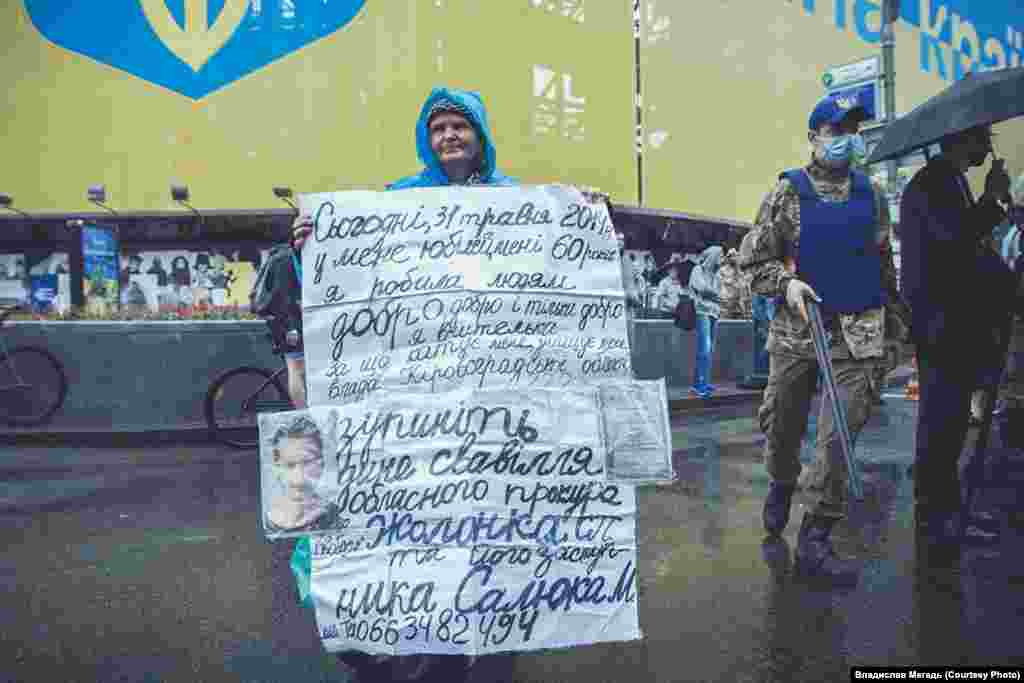 Сьогодні, 31 травня 2014р.
у мене ювілейні 60 років
я робила людям
добро добро і тільки добро
я вчителька
за що катує мене, знищує
влада Кіровоградської
зупиніть
свавілля
обласного прокура
Жолонка
та його заступ-
ника Салюка М.
0663482494
Владислав Мегадь (Courtesy Photo)